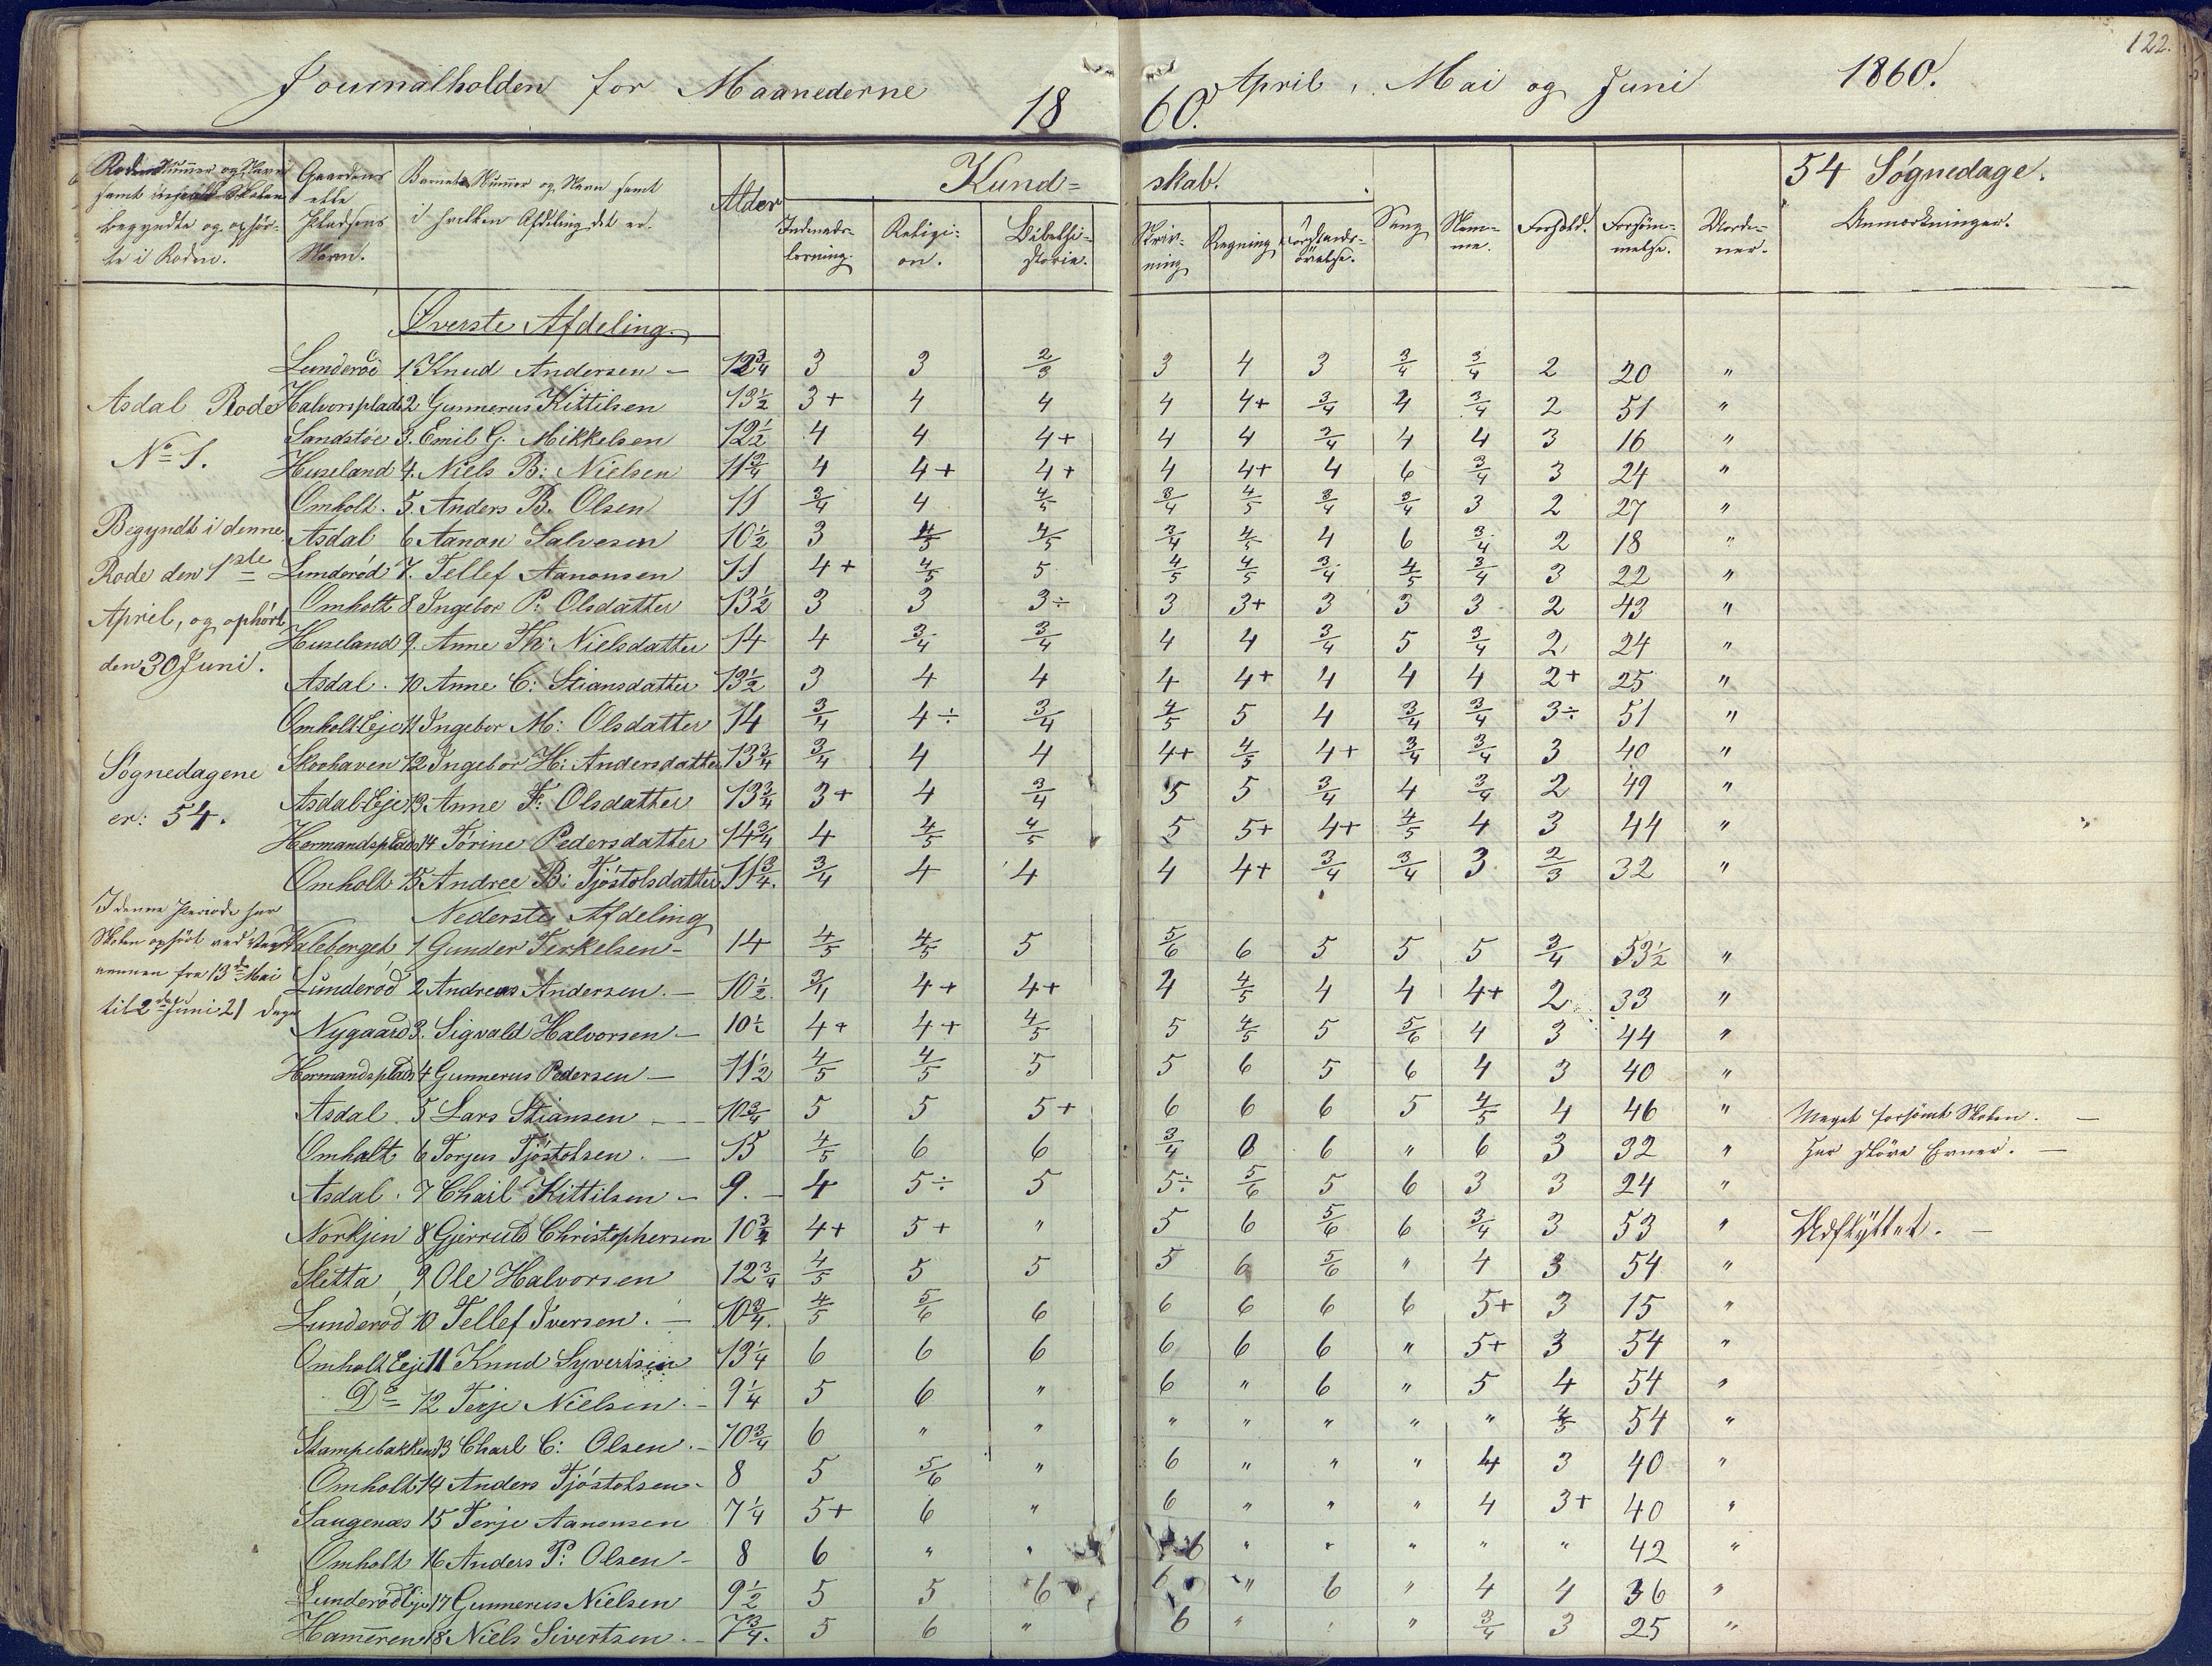 122.
Journalholden for Maanederne April, Mai og Juni 1860.
18 60.
Rodens Nummer og Navn samt naar Skolen begyndte og ophörte i Roden.
Gaardens eller Pladsens Navn.
Barnets Nummer og Navn samt i hvilken Afdeling det er.
Alder
Kund= skab.
Indenads-læsning.
Religi-on.
Bibelhi-storie.
Skriv-ning
Regning
Forstands-övelse.
Sang
Nem-me.
Forhold.
Forsöm-melse.
Ordener.
54 Søgnedage.
Anmærkninger.
Øverste Afdeling.
Lunderöd 1 Knud Andersen – 12 3/4 3 3 2/3 3 4 3 3/4 3/4 2 20 "
Halvorsplads 2 Gunnerus Kittilsen 13 1/2 3+ 4 4 4 4+ 3/4 4 3/4 2 51 "
Sandstøe 3. Emil G. Mikkelsen 12 1/2 4 4 4+ 4 4 3/4 4 4 3 16 "
Huseland 4. Niels B: Nielsen 11 3/4 4 4+ 4+ 4 4+ 4 6 3/4 3 24 "
Omholt. 5. Anders B. Olsen 11 3/4 4 4/5 3/4 4/5 3/4 3/4 3 2 27 "
Asdal 6 Aanon Salvesen 10 1/2 3 4/5 4/5 3/4 4/5 4 6 3/4 2 18 "
Lunderöd 7. Tellef Aanonsen 11 4+ 4/5 5 4/5 4/5 3/4 4/5 3/4 3 22 "
Omholt 8 Ingebor P: Olsdatter 13 1/2 3 3 3÷ 3 3+ 3 3 3 2 43 "
Huseland 9. Anne Th: Nielsdatter 14 4 3/4 3/4 4 4 3/4 5 3/4 2 24 "
Asdal. 10 Anne C: Stiansdatter 13 1/2 3 4 4 4 4+ 4 4 4 2+ 25 "
Omholt-Eje 11 Ingebor M: Olsdatter 14 3/4 4÷ 3/4 4/5 5 4 3/4 3/4 3÷ 51 "
Skovhaven 12 Ingebor H: Andersdatter 13 3/4 3/4 4 4 4+ 4/5 4+ 3/4 3/4 3 40 "
Asdal-Eje 13 Anne F: Olsdatter 13 3/4 3+ 4 3/4 5 5 3/4 4 3/4 2 49 "
Hermandsplads 14 Törine Pedersdatter 14 3/4 4 4/5 4/5 5 5+ 4+ 4/5 4 3 44 "
Omholt 15 Andree B: Tjöstolsdatter 11 3/4. 3/4 4 4 4 4+ 3/4 3/4 3 2/3 32 "
Asdal Rode
No 1.
Begyndt i denne
Rode den 1ste
April, og ophört
den 30 Juni.
Søgnedagene
er: 54.
I denne Periode har
Skolen ophört ved
fra 13de Mai
til 2den Juni 21 Dage
Nederste Afdeling
Valeberget 1 Gunder Terkelsen – 14 4/5 4/5 5 5/6 6 5 5 5 3/4 53 1/2 "
Lunderöd 2 Andreas Andersen. – 10 1/2. 3/4 4+ 4+ 4 4/5 4 4 4+ 2 33 "
Nygaard 3. Sigvald Halvorsen – 10 1/2 4+ 4+ 4/5 5 4/5 5 5/6 4 3 44 "
Hermandsplads 4 Gunnerus Pedersen – 11 1/2 4/5 4/5 5 5 6 5 6 4 3 40 "
Asdal. 5 Lars Stiansen – 10 3/4 5 5 5+ 6 6 6 5 4/5 4 46 " Meget forsömt Skolen. –
Omholt 6 Torjus Tjöstolsen. – 15 4/5 6 6 3/4 6 6 " 6 3 32 " Har slöve Evner. –
Asdal. 7 Charl Kittilsen – 9. – 4 5÷ 5 5÷ 5/6 5 6 3 3 24 "
Norkjen 8 Gjerruld Christophersen 10 3/4 4+ 5+ " 5 6 5/6 6 3/4 3 53 " Udflyttet. –
Sletta 9 Ole Halvorsen 12 3/4 4/5 5 5 5 6 5/6 " 4 3 54 "
Lunderöd 10 Tellef Iversen. – 10 3/4. 4/5 5/6 6 6 6 6 6 5+ 3 15 "
Omholt Eje 11 Knud Syvertsen 13 1/4 6 6 6 6 6 6 " 5+ 3 54 "
Do 12 Terje Nielsen. – 9 1/4 5 6 " 6 " 6 " 5 4 54 "
Stampebakken 13 Charl C: Olsen. – 10 3/4 6 " " " " " " " 4/5 54 "
Omholt 14 Anders Tjöstolsen – 8 5 5/6 " 6 " " " 4 3 40 "
Saugenæs 15 Terje Aanonsen 7 1/4 5+ 6 " 6 " " " 4 3+ 40 "
Omholt 16 Anders P: Olsen – 8 6 " " 6 " " " " " 42 "
Lunderöd Eje 17 Gunnerus Nielsen 9 1/2 5 5 6 6 " 6 " 4 4 36 "
Ham̄eren 18 Niels Sivertsen. – 7 3/4. 5 6 " 6 " " 3/4 3 25 "